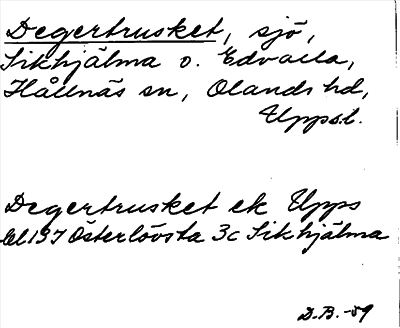 Degertrusket, sjö,
Sikhjälma o. Edvalla,
Hållnäs sn, Olands hd,
Upps.l.
Degertrusket ek Upps
bl 137 Österlövsta 3c Sikhjälma
D.B.-59